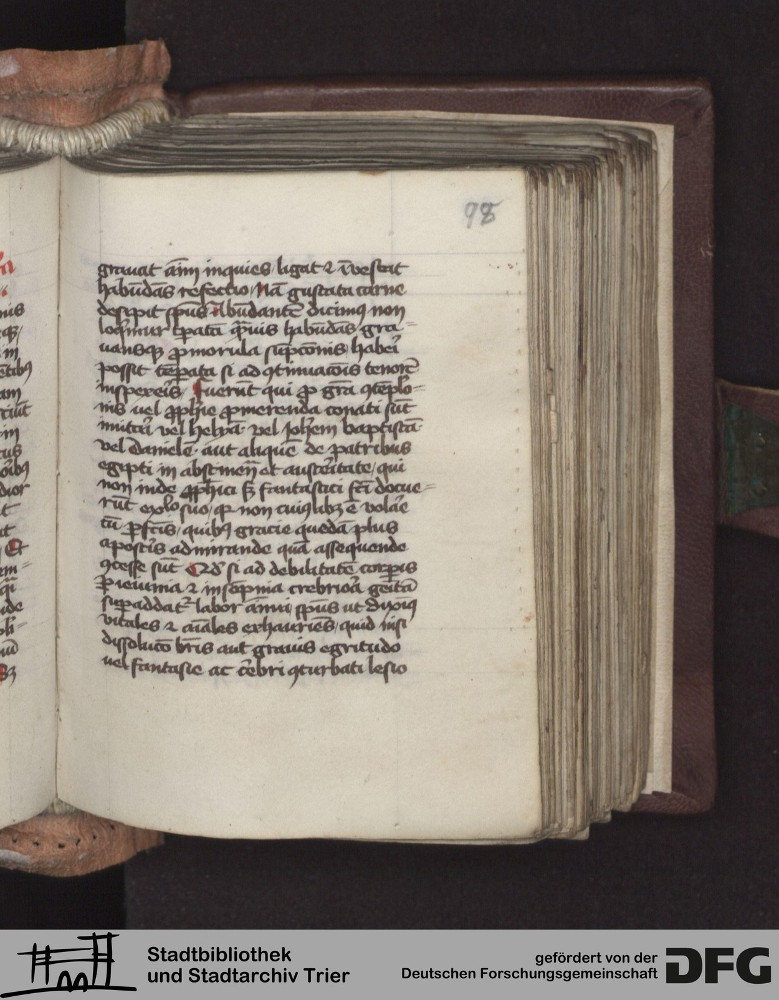 98
grauat aīm inquies ligat ⁊ īuestat
habūdās refectio Nā gustata carne
desipit spūs abūdantē dicimꝰ non
loqͥmur tꝑatā qͣuis habūdās gra
uansqꝫ ꝓ morula sūpcōnis haberi
possit tēꝑata si ad ꝯtinuacōis tenorē
inspexeris fuerūt qui ꝓ grā ꝯtēplo
nis uel ꝓphīe ꝓmerenda conati sūt
imittari vel helyā vel ioh̄em baptistā
vel Danielē aut aliquē de patribus
egipti in abstinen̄ et austeritate qui
non inde ꝓph̄ici sꝫ fantastici fc̄i docue
rūt explo suo qꝛ non cuiꝰlibꝫ ē volare
cū ꝑfc̄is quibꝰ gracie quedā plus
admirande quā assequende
ꝯcesse sūt Qd̓ si ad debilitatē corꝑis
ꝑ ieiunia ⁊ insōpnia crebriora
suꝑaddatᷣ labor animi spūs ut
vitales ⁊ aīales exhauriēs quid nisi
dissoluco aut grauis egritudo
uel fantasie ac cērbri ꝯturbati lesio
Stadtbibliothek
und Stadtarchiv Trier
gefördert von der
Deutschen Forschungsgemeinschaft
DFG